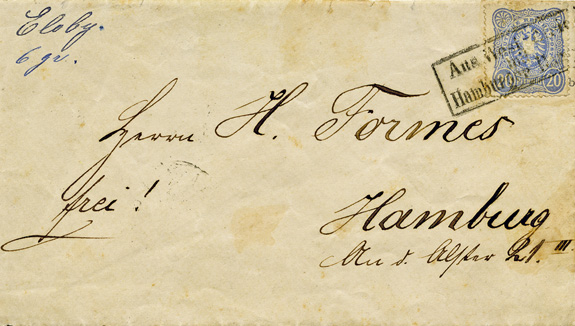 Eloby.
6 gr.
Aus West
Hamburger
20 20
Herrn H. Formes
frei!
Hamburg
An d. Alster 21. III.